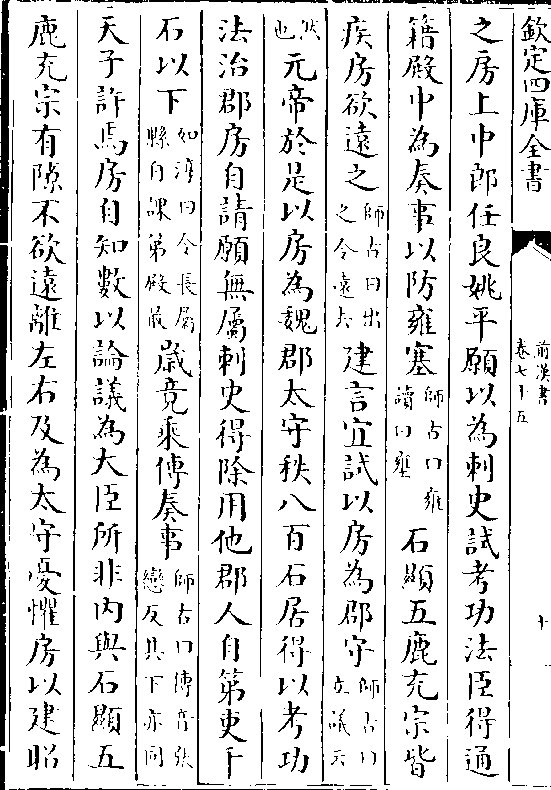 欽定四庫全書
前漢書
卷七十五
十
之房上中郎任良姚平願以為刺史試考功法臣得通
籍殿中為奏事以防雍塞師古曰雍讀曰壅石顯五鹿充宗皆
疾房欲遠之師古曰出之令遠去建言宜試以房為郡守師古曰立議云
然也元帝於是以房為魏郡太守秩八百石居得以考功
法治郡房自請願無屬刺史得除用他郡人自第吏千
石以下如淳曰令長屬縣自課第殿最歲竟乘傳奏事師古曰傳音張戀反其下亦同
天子許焉房自知數以論議為大臣所非內與石顯五
鹿充宗有隙不欲遠離左右及為太守憂懼房以建昭